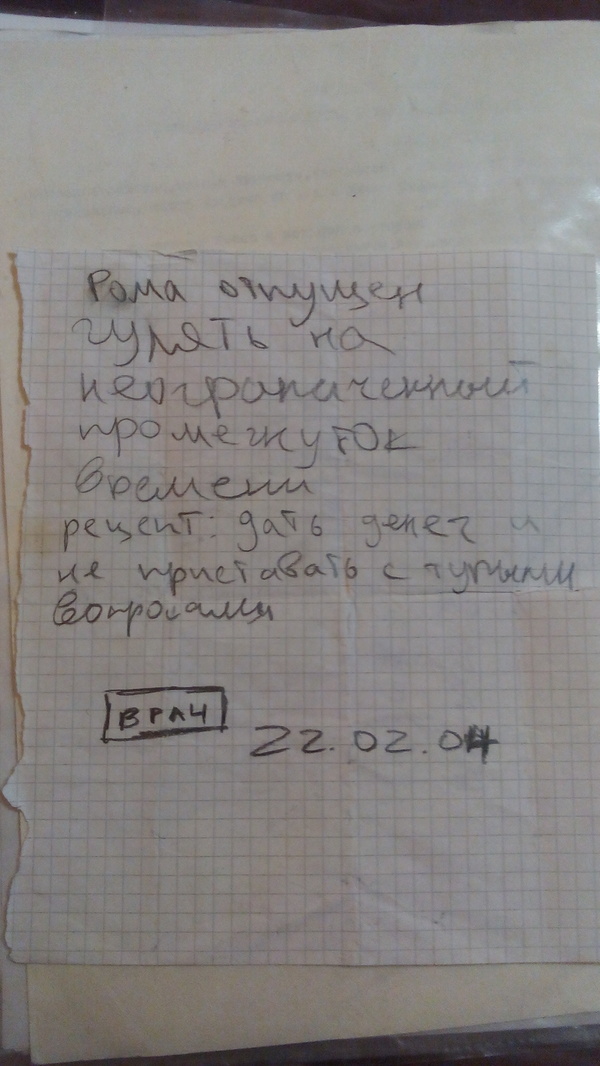 Рома отпущен
гулять на
неограниченный
промежуток
времени
рецепт: дать денег и
не приставать с тупыми
вопросами
ВРАЧ
22.02.04